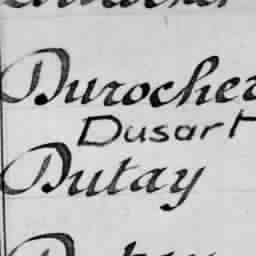 Durocher
Dusart
Dutay